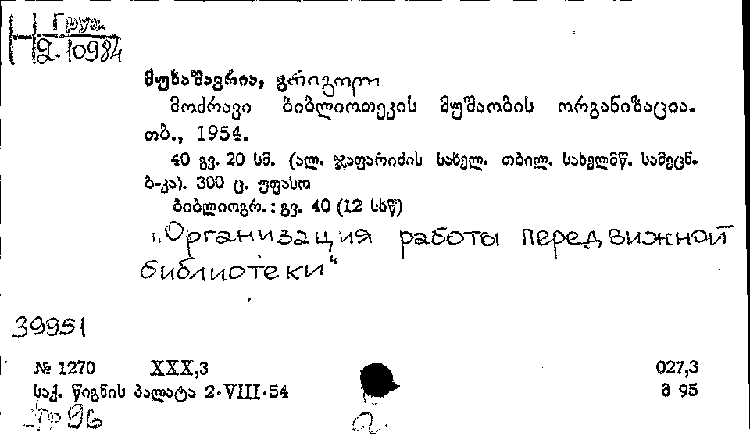 Груз.
2.10984
მუხაშავრია, გრიგოლი
მოძრავი ბიბლიოთეკის მუშაობის ორგანიზაცია.
თბ., 1954.
40 გვ. 20 სმ. (ალ. ჯაფარიძის სახელ. თბილ. სახელმწ. სამეცნ.
ბ-კა). 300 ც. უფასო
ბიბლიოგრ.: გვ. 40 (12 სხწ)
„Организация работы передвижной
библиотеки“
39951
№ 1270 XXX,3 027,3
საქ. წიგნის პალატა 2·VIII·54 მ 95
96